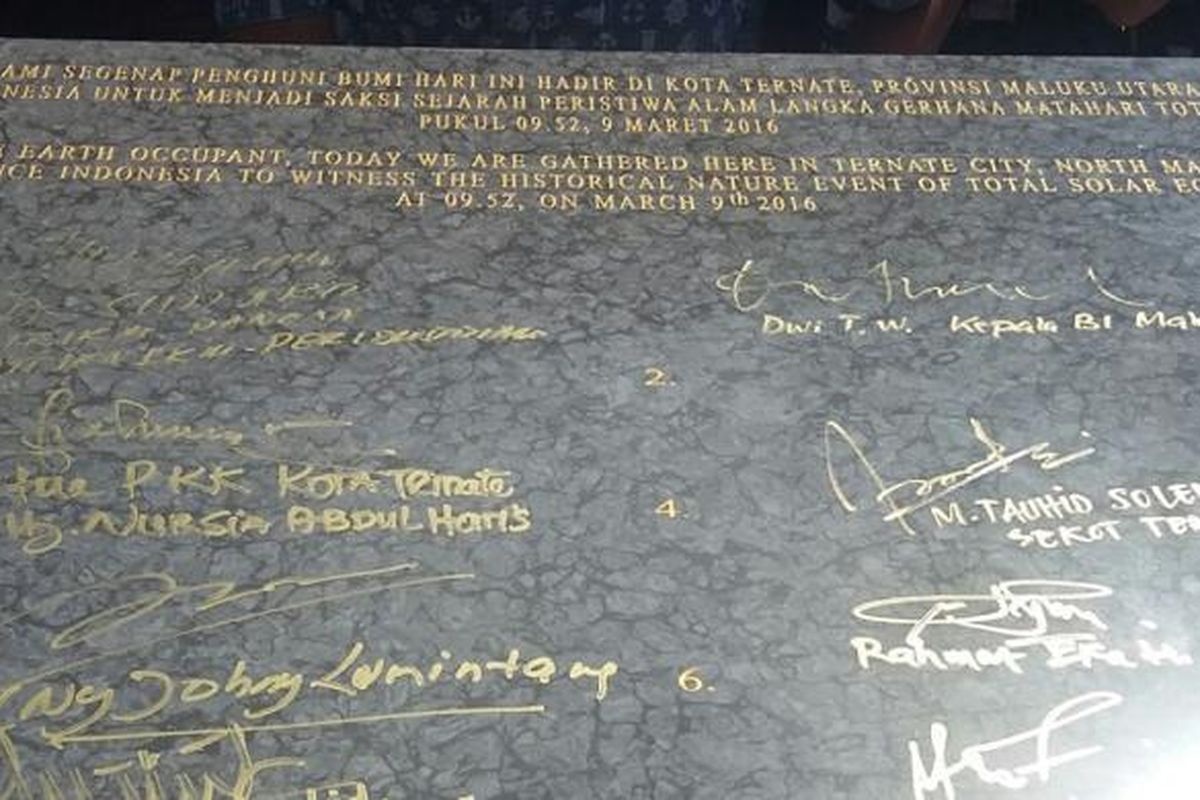 AMI SEGENAP PENGHUNI BUMI HARI INI HADIR DI KOTA TERNATE, PROVINSI MALUKU UTARA
NESIA UNTUK MENJADI SAKSI SEJARAH PERISTIWA ALAM LANGKA GERHANA MATAHARI TOT
PUKUL 09.52, 9 MARET 2016
EARTH OCCUPANT, TODAY WE ARE GATHERED HERE IN TERNATE CITY, NORTH MA
NCE INDONESIA TO WITNESS THE HISTORICAL NATURE EVENT OF TOTAL SOLAR EC
AT 09.52, ON MARCH 9th 2016
Dwi T.W. Kepala BI Mal
2.
PKK KOTA Ternate
Hj. NURSIA ABDUL Haris
4.
M. TAUHID SOLE
SEKOT TE
Rahmat
Johny Lumintang
6.